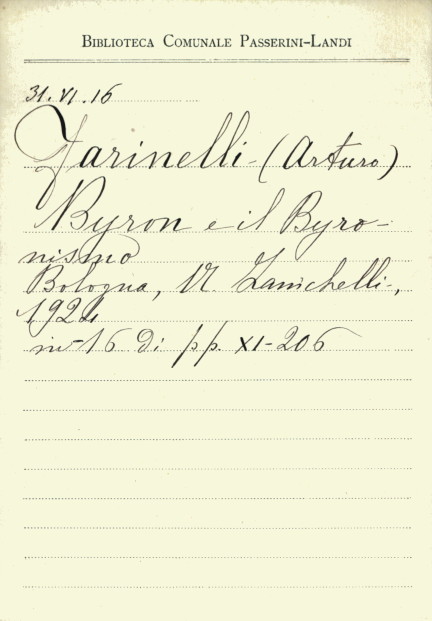 BIBLIOTECA COMUNALE PASSERINI-LANDI
31.VI.16
Farinelli (Arturo)
Byron e il Byro-
nismo
Bologna, N. Zanichelli,
1924
in-16 di pp. XI-206